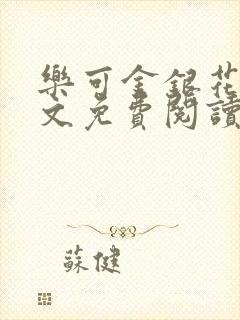 樂可金銀花
文免費閱讀
蘇健